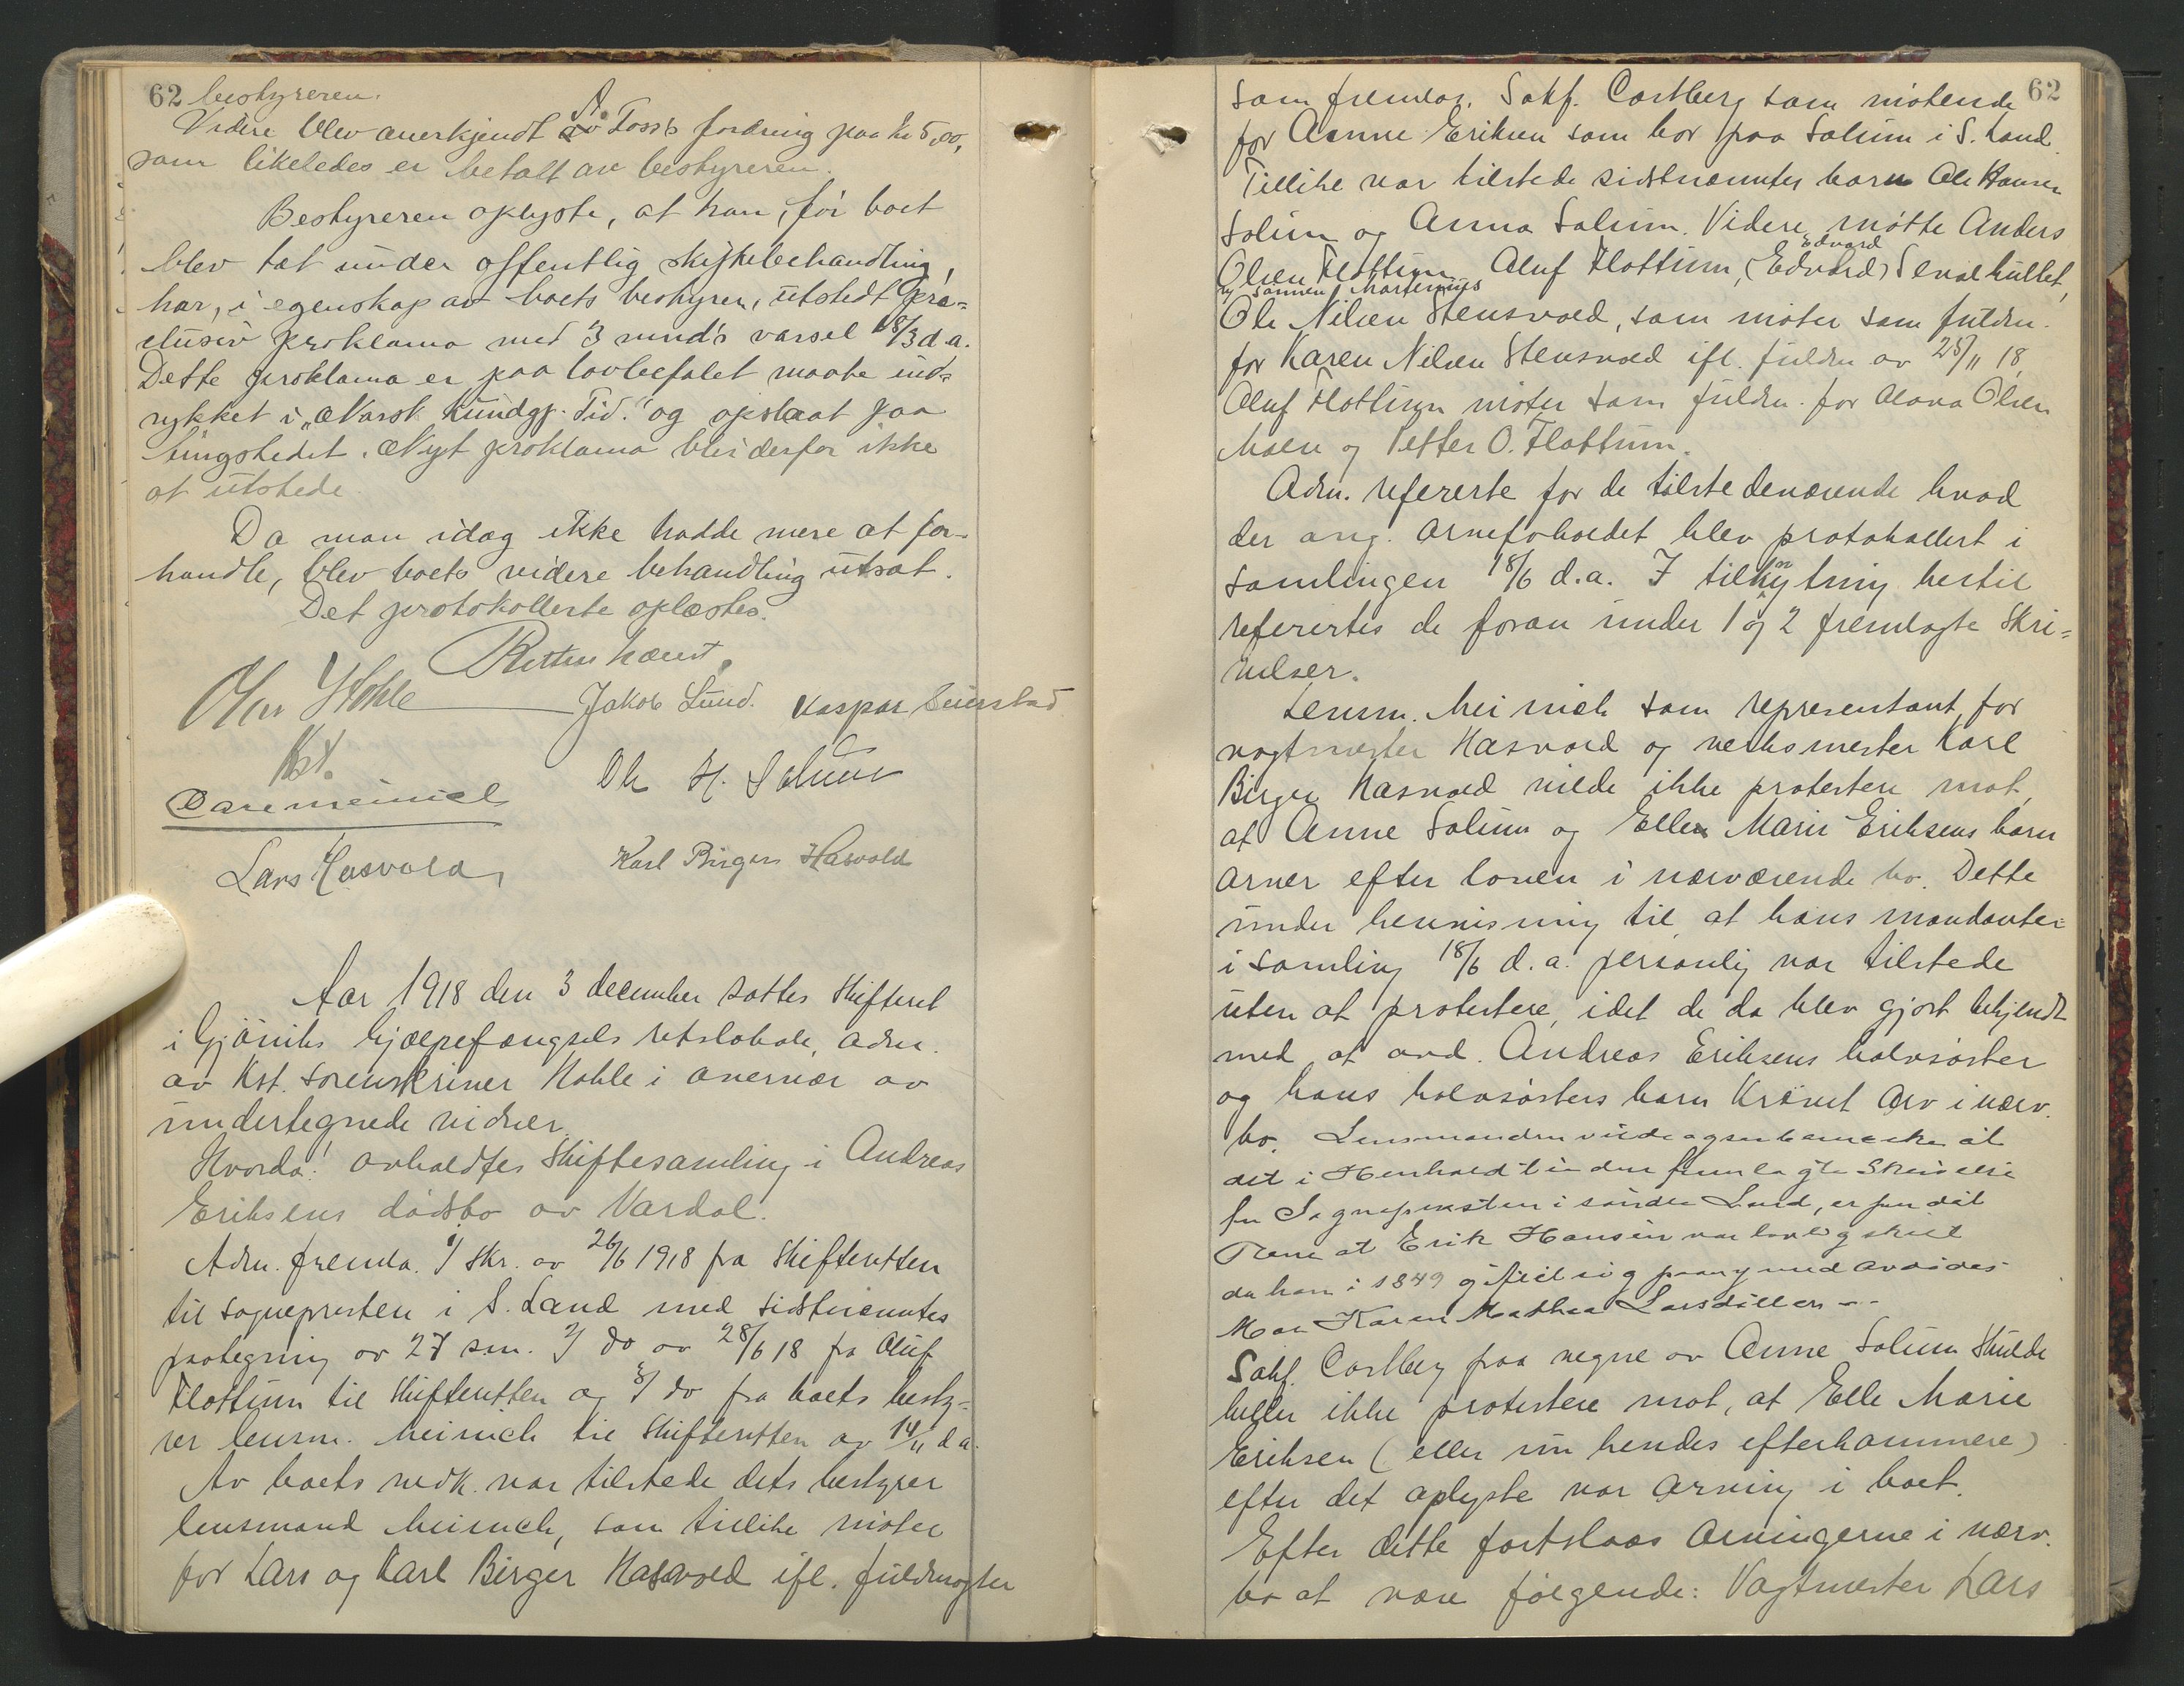 62 bestyreren.
Videre blev anerkjendt A. Foss's fordring paa kr 5,00,
som likeledes er betalt av bestyreren.
Bestyreren oplyste, at han, før boet
blev tat under offentlig skiftebehandling,
har, i egenskap av boets bestyrer, utstedt præ=
clusiv proklama med 3 mnd's varsel 18/3 d.a.
Dette proklama er paa lovbefalet maate ind=
rykket i „Norsk Kundgj. Tid." og opslaat paa
tingstedet. Nyt proklama blir derfor ikke
at utstede.
Da man idag ikke hadde mere at for-
handle, blev boets videre behandling utsat.
Det protokollerte oplæstes.
Retten hævet.
Olav Hohle
Jakob Lund. Kaspar
Kst.
Ole H. Solum
Carl Meinich
Lars Hasvold,
Karl Birger Hasvold
Aar 1918 den 3 december sattes skifteret
i Gjøviks hjælpefængsels retslokale, adm.
av Kst. sorenskriver Hohle i overvær av
undertegnede vidner.
Hvorda! avholdtes skiftesamling i Andreas
Eriksens dødsbo av Vardal.
Adm. fremla. 1/ skr. av 26/6 1918 fra skifteretten
til sognepresten i S. Land med sidstnævntes
paategning av 27 s.m. 2/ do av 28/6 18 fra Oluf
Flattum til skifteretten og 3/ do fra boets besty=
rer lensm. Meinich til skifteretten av 14/11 d.a.
Av boets vedk. var tilstede dets bestyrer
lensmand Meinich, som tillike møter
for Lars og Karl Birger Hasvold ifl. fuldmagter
62
som fremlos. Sakf. Castberg som møtende
for Anne Eriksen som bor paa Solum i S. Land.
Tillike var tilstede sidstnævntes barn Ole Hansen
Solum og Anna Solum. Videre møtte Anders
Edvard
Olsen Flattum, Oluf Flattum, (Edvard)
ny sønnen Martenius
Ole Nilsen Stensvold, som møter som fuldm.
for Karen Nilsen Stensvold ifl. fuldm av 25/11 18,
Oluf Flattum møter som fuldm. for Olava Olsen
Moen og Petter O. Flattum.
Adm. refererte for de tilstedeværende hvad
der ang. arveforholdet blev protokollert i
samlingen 18/6 d.a. I tilknytning hertil
refertes de foran under 1 og 2 fremlagte skri=
velser.
Lensm. Meinich som representant for
vagtmester Hasvold og verksmester Karl
Birger Hasvold vilde ikke protestere mot,
at Anne Solum og Ellen Marie Eriksens barn
arver efter loven i nærværende bo. Dette
under henvisning til at hans mandanter
i samling 18/6 d.a. personlig var tilstede
uten at protestere, idet de da blev gjort bekjendt
med, at avd. Andreas Eriksens halvsøster
og hans halvsøsters barn krævet arv i nærv.
bo. Lensmanden vilde ogsaa bemerke at
det i Henhold til den fremlagte Skrivelse
fra Sognepresten i søndre Land, er
at Erik Hansen var lovlig skilt
da han i 1849 giftet sig paany med avdødes
Mor Karen Mathea Larsdatter --
Sakf. Castberg paa vegne av Anne Solum skulde
heller ikke protestere mot, at Elle Marie
Eriksen (eller nu hendes efterkommere)
efter det oplyste var arving i boet.
Efter dette fastslaas arvingerne i nærv.
bo at være følgende: Vagtmester Lars